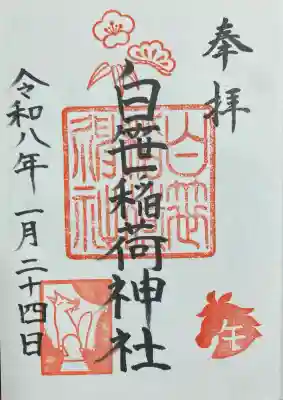 奉拝
白笹稲荷神社
白笹稲荷神社
午
令和八年 一月二十四日